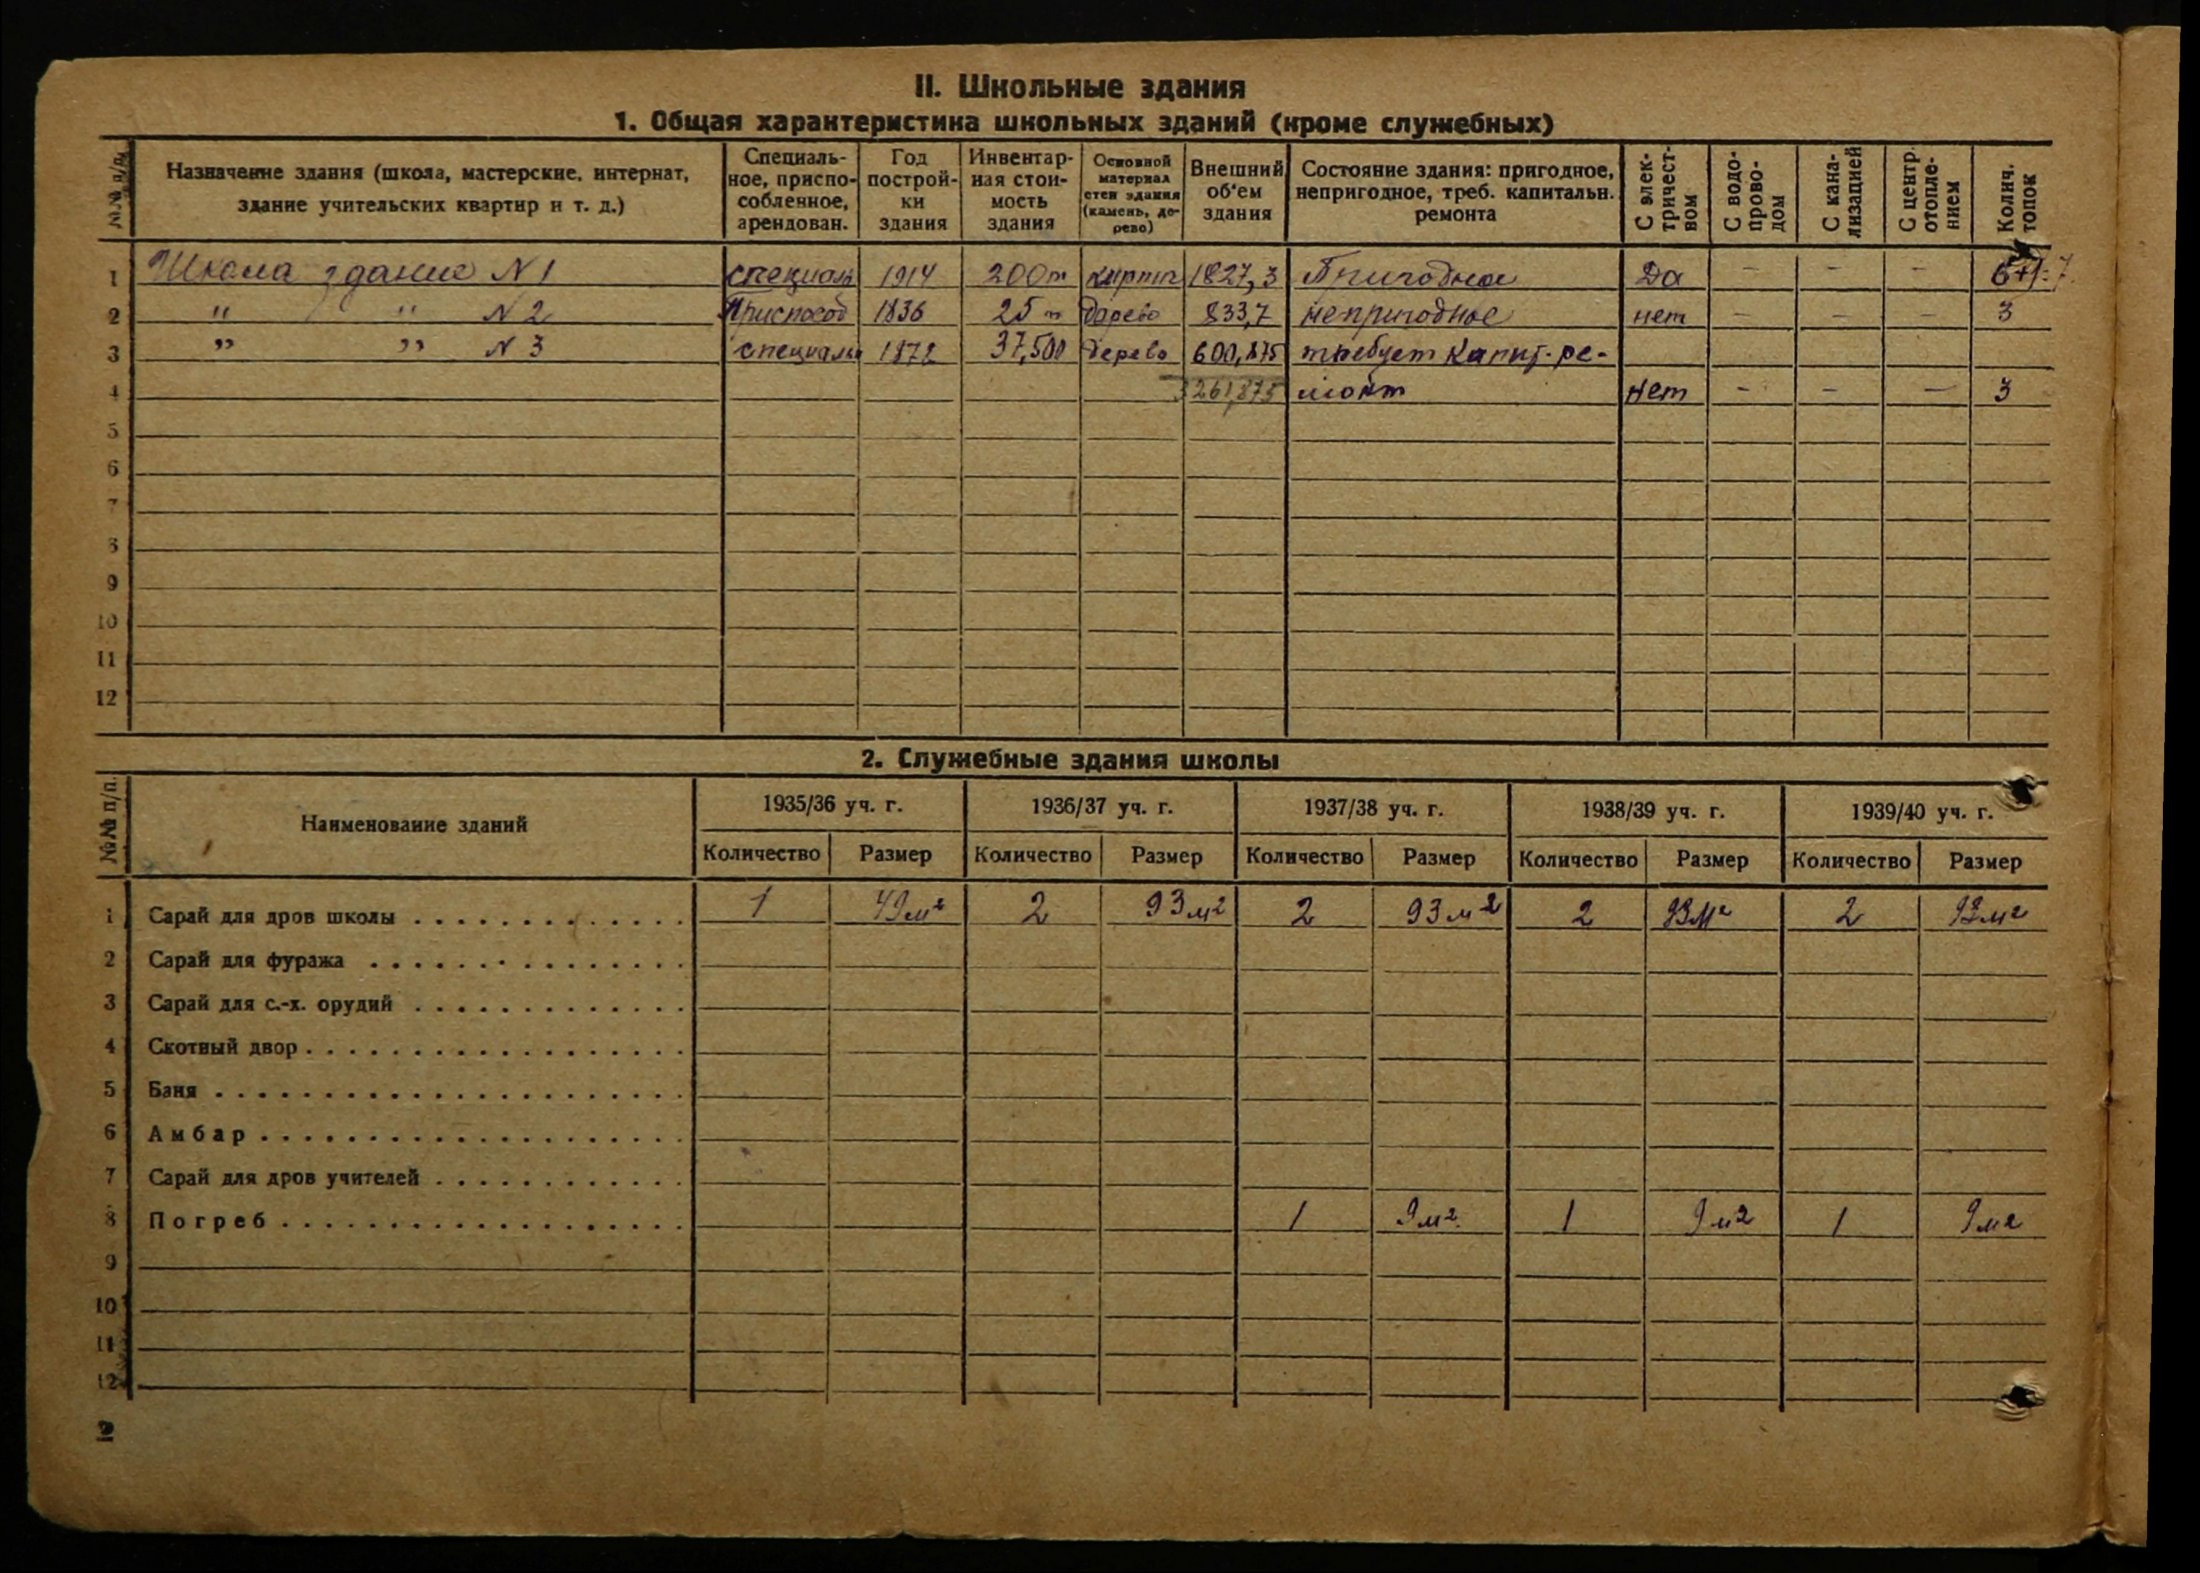 II. Школьные здания
1. Общая характеристика школьных зданий (кроме служебных)
№№ п/п. Назначение здания (школа, мастерские, интернат, здание учительских квартир и т. д.) Специальное, приспособленное, арендован. Год постройки здания Инвентарная стоимость здания Основной материал стен здания (камень, дерево) Внешний об'ем здания Состояние здания: пригодное, непригодное, треб. капитальн. ремонта С электричеством С водопроводом С канализацией С центр. отоплением Колич. топок
1 Школа здание N 1 специаль 1914 200 т кирпич 1827,3 Пригодное Да — — — 6+1=7
2 " " N 2 Приспособ 1836 25 т дерево 833,7 непригодное нет — — — 3
3 " " N 3 специальн 1872 37,500 дерево 600,875 требует капит. ре-
4 3261,875 монт нет — — — 3
5
6
7
8
9
10
11
12
2. Служебные здания школы
№№ п/п. Наименование зданий 1935/36 уч. г. 1936/37 уч. г. 1937/38 уч. г. 1938/39 уч. г. 1939/40 уч. г.
Количество Размер Количество Размер Количество Размер Количество Размер Количество Размер
1 Сарай для дров школы 1 49 м² 2 93 м² 2 93 м² 2 93 м² 2 93 м²
2 Сарай для фуража
3 Сарай для с.-х. орудий
4 Скотный двор
5 Баня
6 Амбар
7 Сарай для дров учителей
8 Погреб 1 9 м² 1 9 м² 1 9 м²
9
10
11
12
2